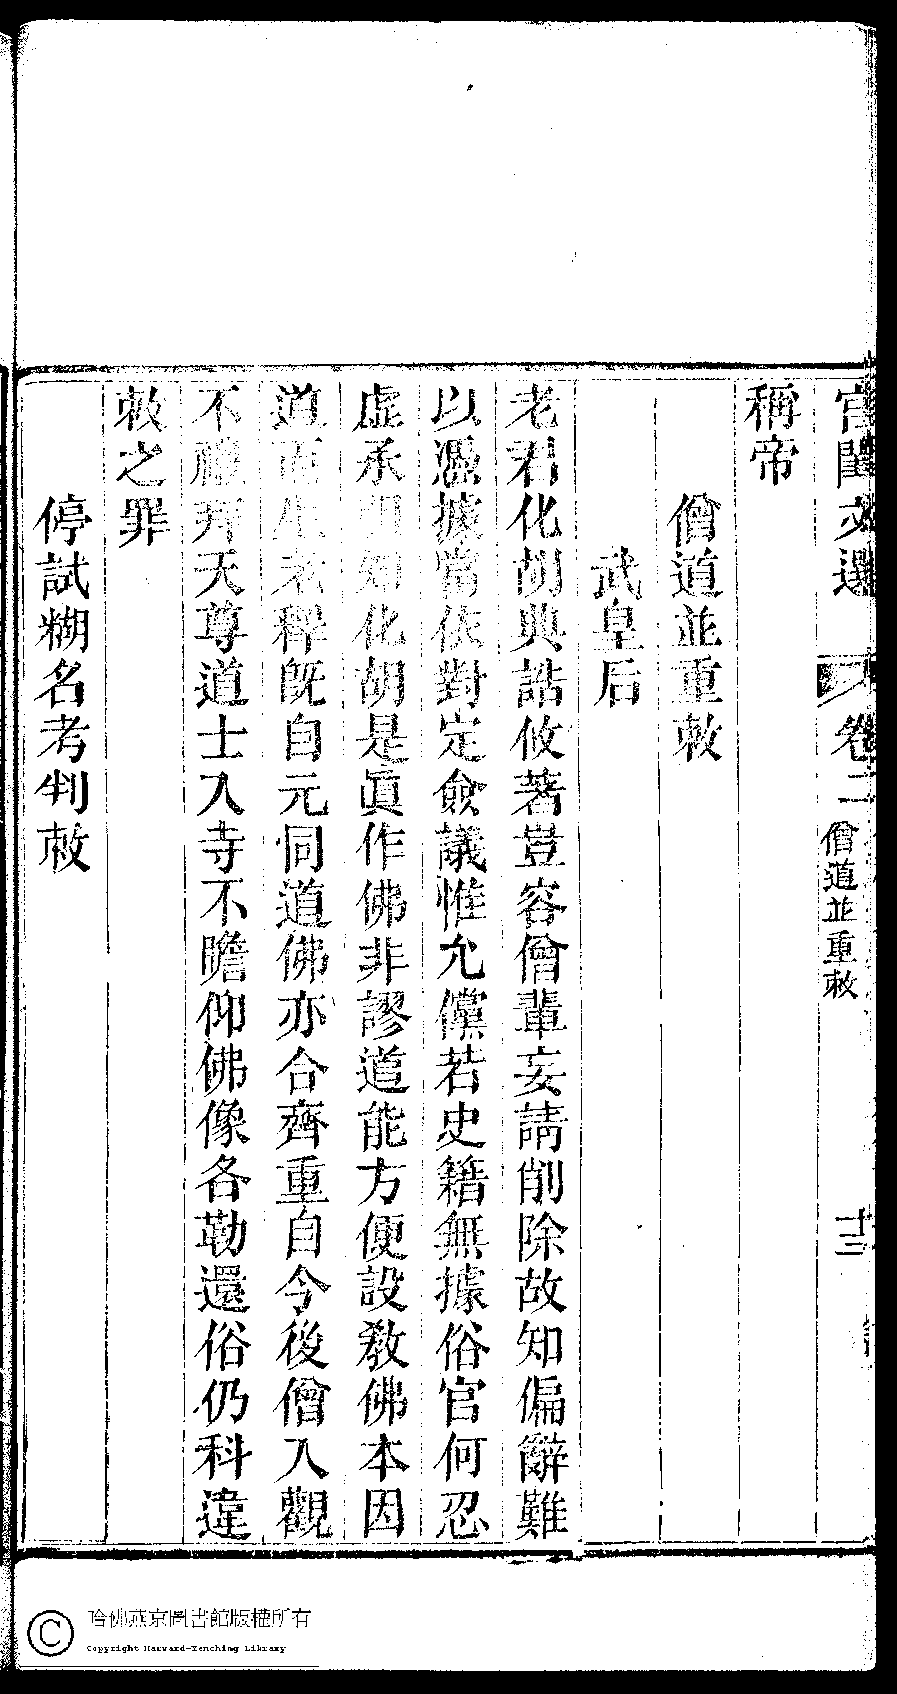 宮閨文選
卷二
僧道並重敕
十三
稱帝
僧道並重敕
武皇后
老君化胡典誥攸著豈容僧輩妄請削除故知偏辭難
以憑據當依對定僉議惟允儻若史籍無據俗官何忍
虛承明知化胡是眞作佛非謬道能方便設敎佛本因
道而生老釋旣自元同道佛亦合齊重自今後僧入觀
不禮拜天尊道士入寺不瞻仰佛像各勒還俗仍科違
敕之罪
停試糊名考判敕
哈佛燕京圖書館版權所有
Copyright Harvard-Yenching Library